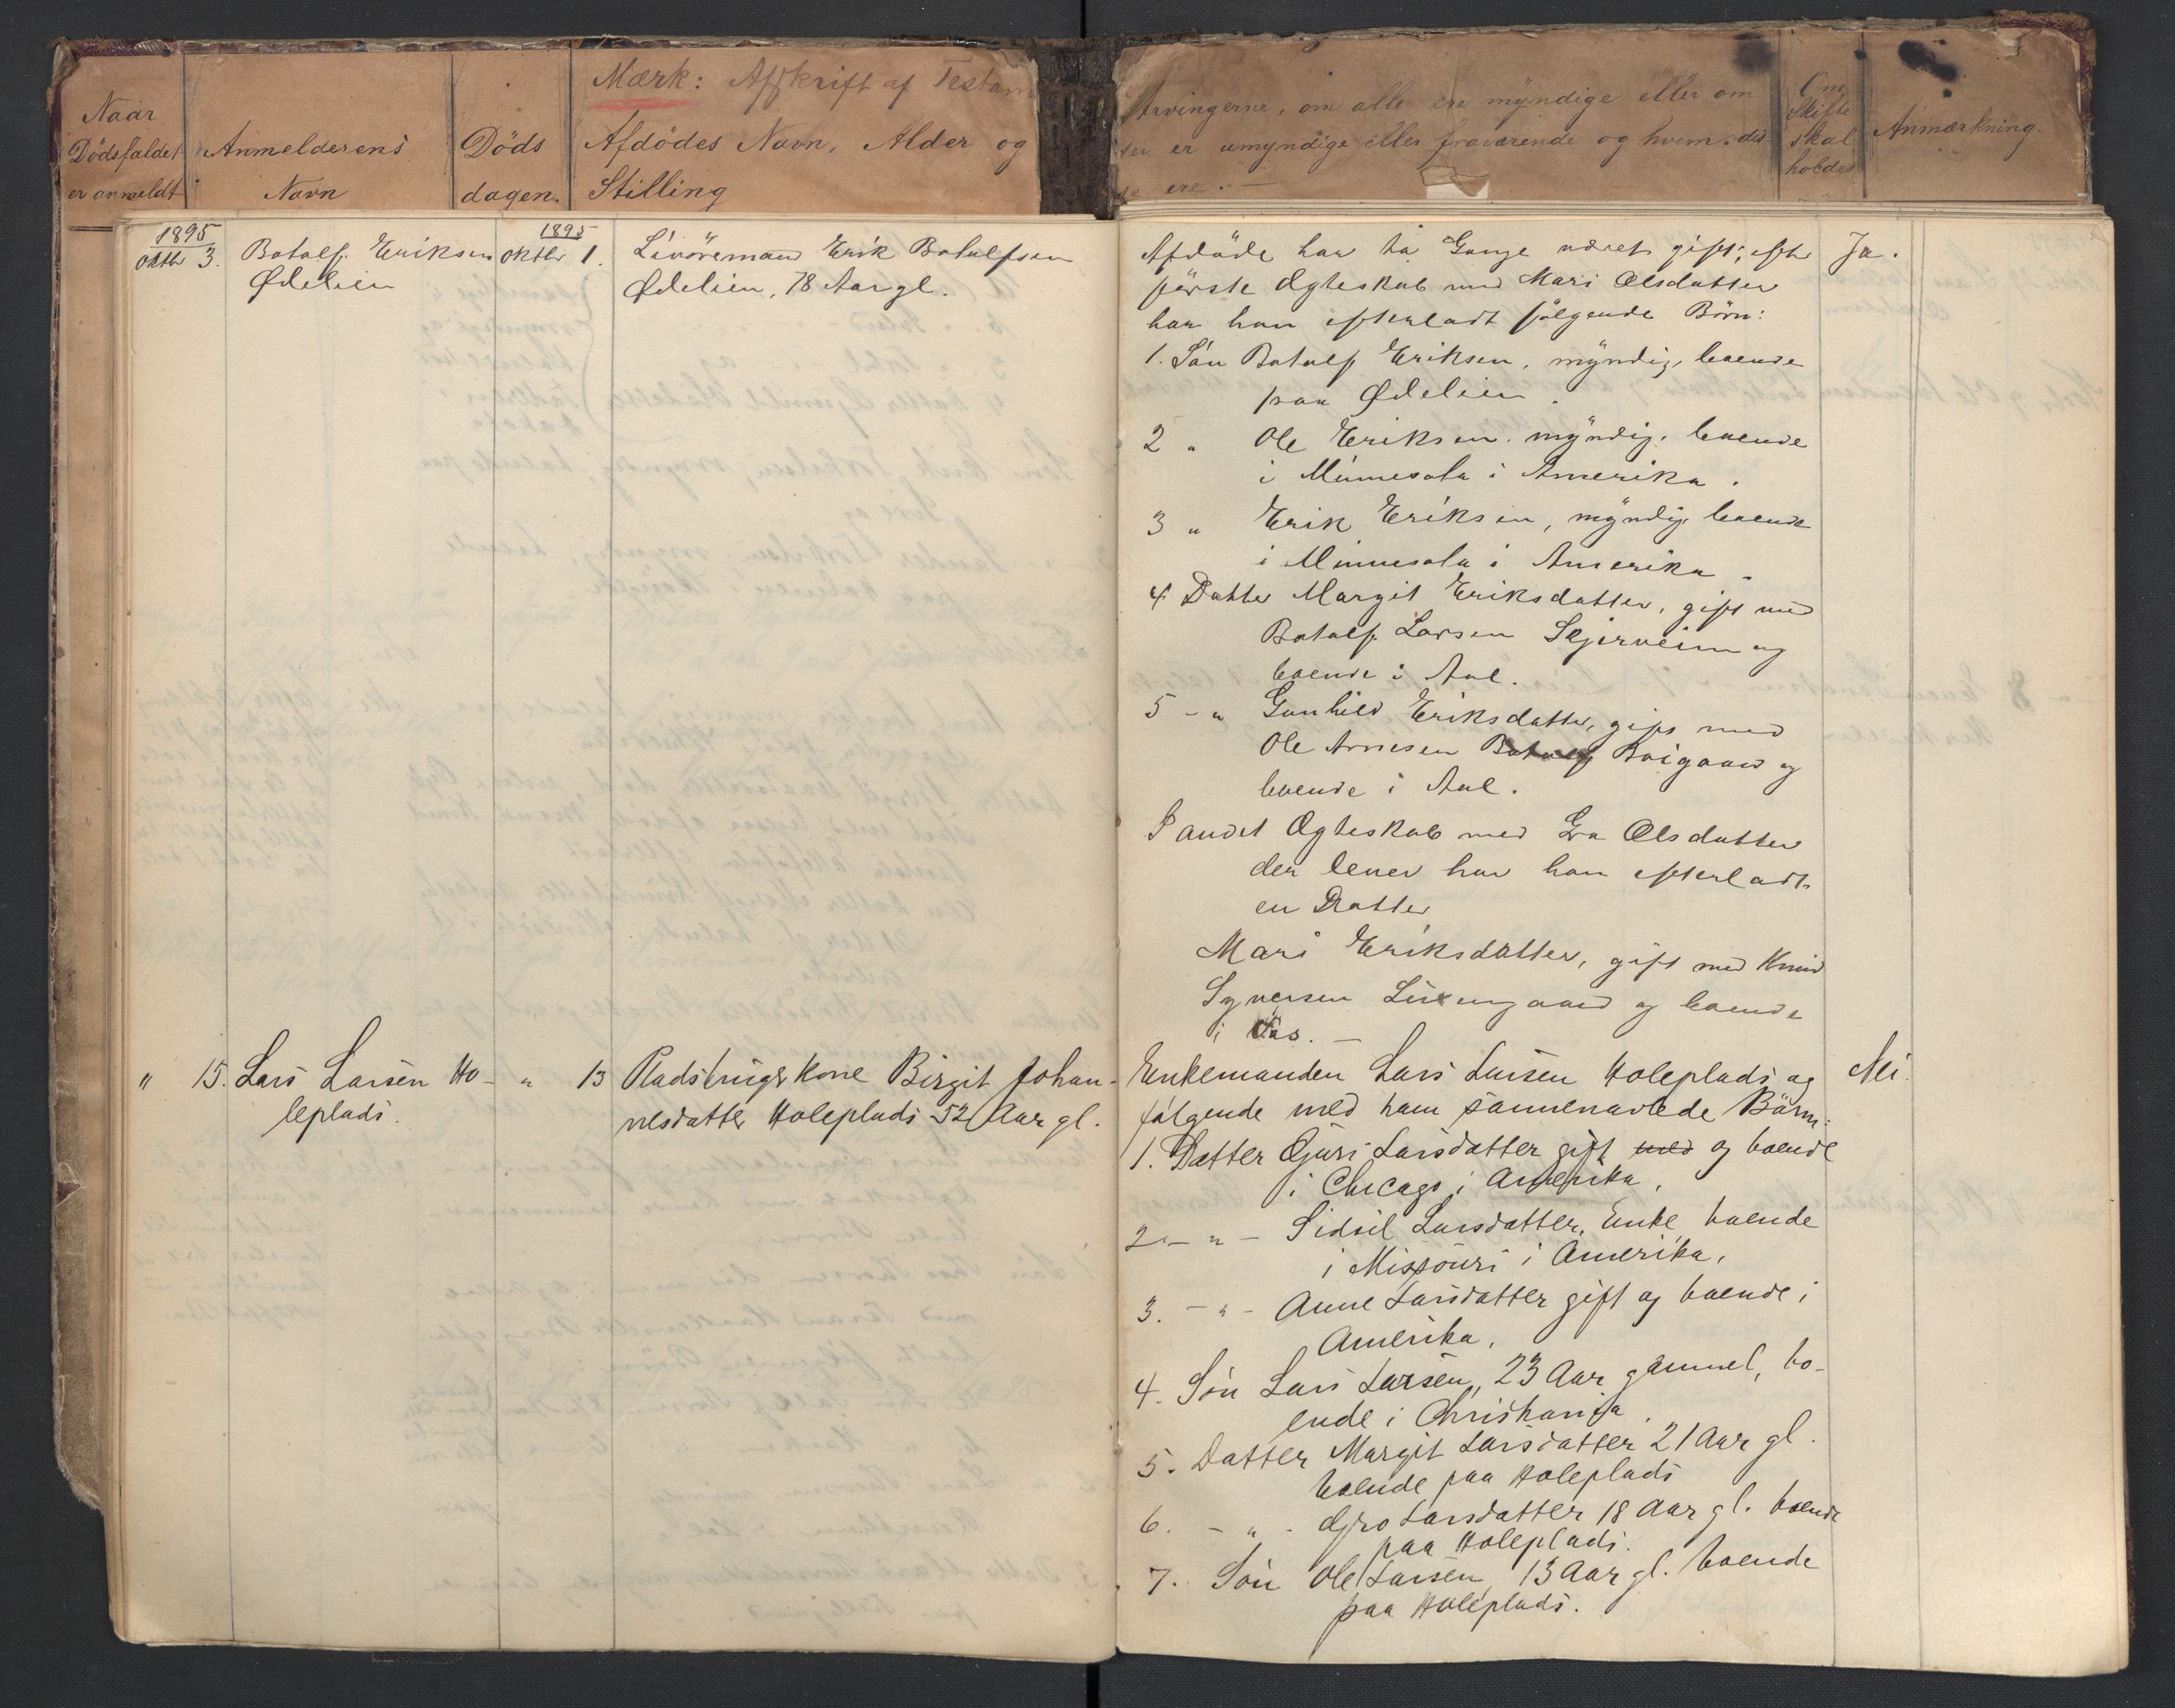 Mærk: Afskrift af Testam
Naar
Dödsfaldet
er anmeldt
Anmelderens
Navn
Döds
dagen.
Afdödes Navn, Alder og
Stilling
Arvingerne, om alle ere myndige eller om
er umyndige eller fraværende og hvem dis-
se ere. —
Om
Skifte
skal
holdes
Anmærkning.
1895
Oktbr 3.
Botolf Eriksen
Ødelien
1895
Oktbr 1.
Livöremand Erik Botolfsen
Ødelien, 78 Aar gl.
Afdöde har to Gange været gift; efter
förste Ægteskab med Mari Olsdatter
har han efterladt fölgende Börn:
1. Sön Botolf Eriksen, myndig, boende
paa Ødelien.
2 „ Ole Eriksen. myndig. boende
i Minnesota i Amerika.
3 „ Erik Eriksen, myndig boende
i Minnesota i Amerika.
4 Datter Margit Eriksdatter, gift med
Botolf Larsen Skjerveim og
boende i Aal.
5 - „ Gunhild Eriksdatter, gift med
Ole Arnesen Boigaard og
boende i Aal.
I andet Ægteskab med Eva Olsdatter
der lever har han efterladt
en Datter
Mari Eriksdatter, gift med Knud
Syversen og boende
i
Ja.
„ 15.
Lars Larsen Ho-
leplads.
„ 13
Pladsbrugerkone Birgit Johan-
nesdatter Holeplads 52 Aar gl.
Enkemanden Lars Larsen Holeplads og
fölgende med ham sammenavlede Börn:
1. Datter Guri Larsdatter gift med og boende
i Chicago i Amerika.
2 — „ — Sidsil Larsdatter, Enke, boende
i Missouri i Amerika.
3. — „ — Anne Larsdatter gift og boende i
Amerika.
4. Sön Lars Larsen, 23 Aar gammel, bo-
ende i Christiania.
5. Datter Margit Larsdatter 21 Aar gl.
boende paa Holeplads
6. — „ — Gro Larsdatter 18 Aar gl. boende
paa Holeplads.
7. Sön Ole Larsen, 13 Aar gl. boende
paa Holeplads.
Nei.